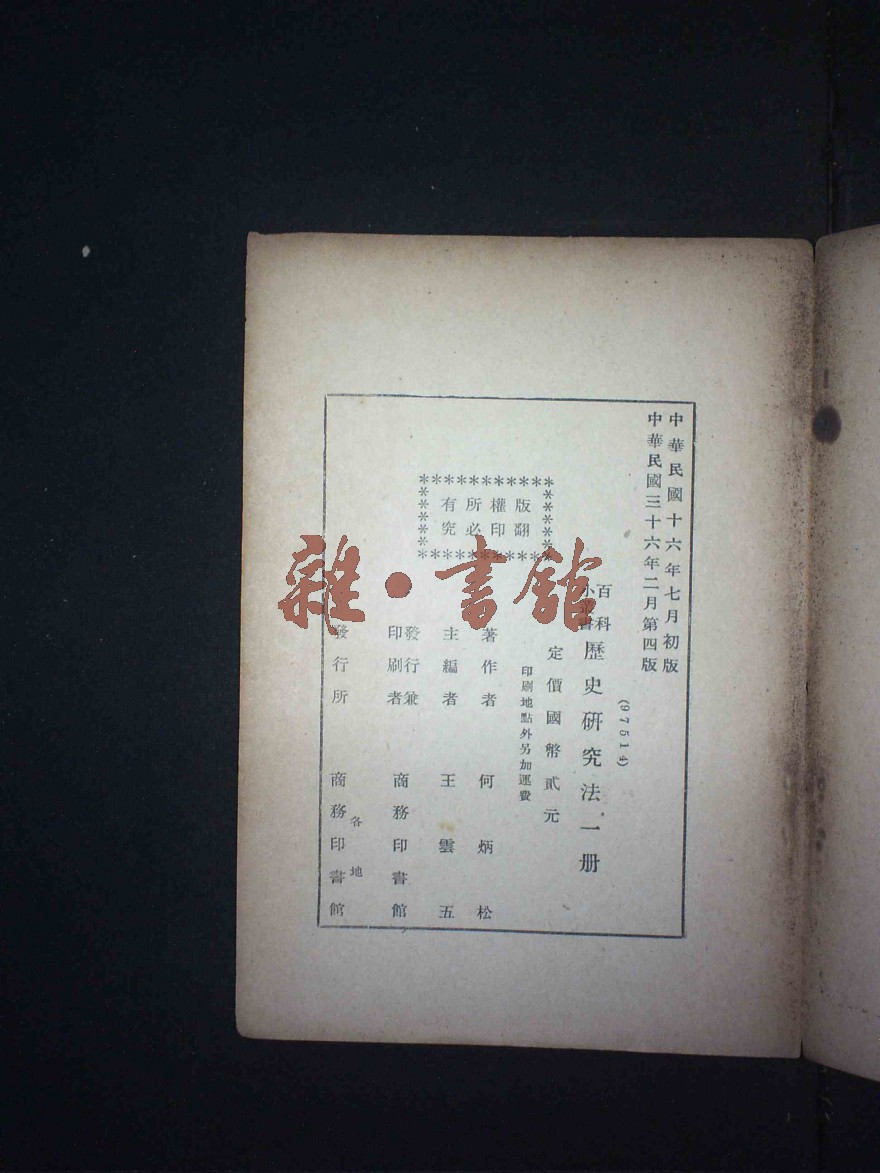 中華民國十六年七月初版
中華民國三十六年二月第四版
(97514)
百科
小叢書
歷史研究法一册
定價國幣貳元
印刷地點外另加運費
版權所有
翻印必究
著作者 何炳松
主編者 王雲五
發行兼
印刷者 商務印書館
各地
發行所 商務印書館
雜·書館